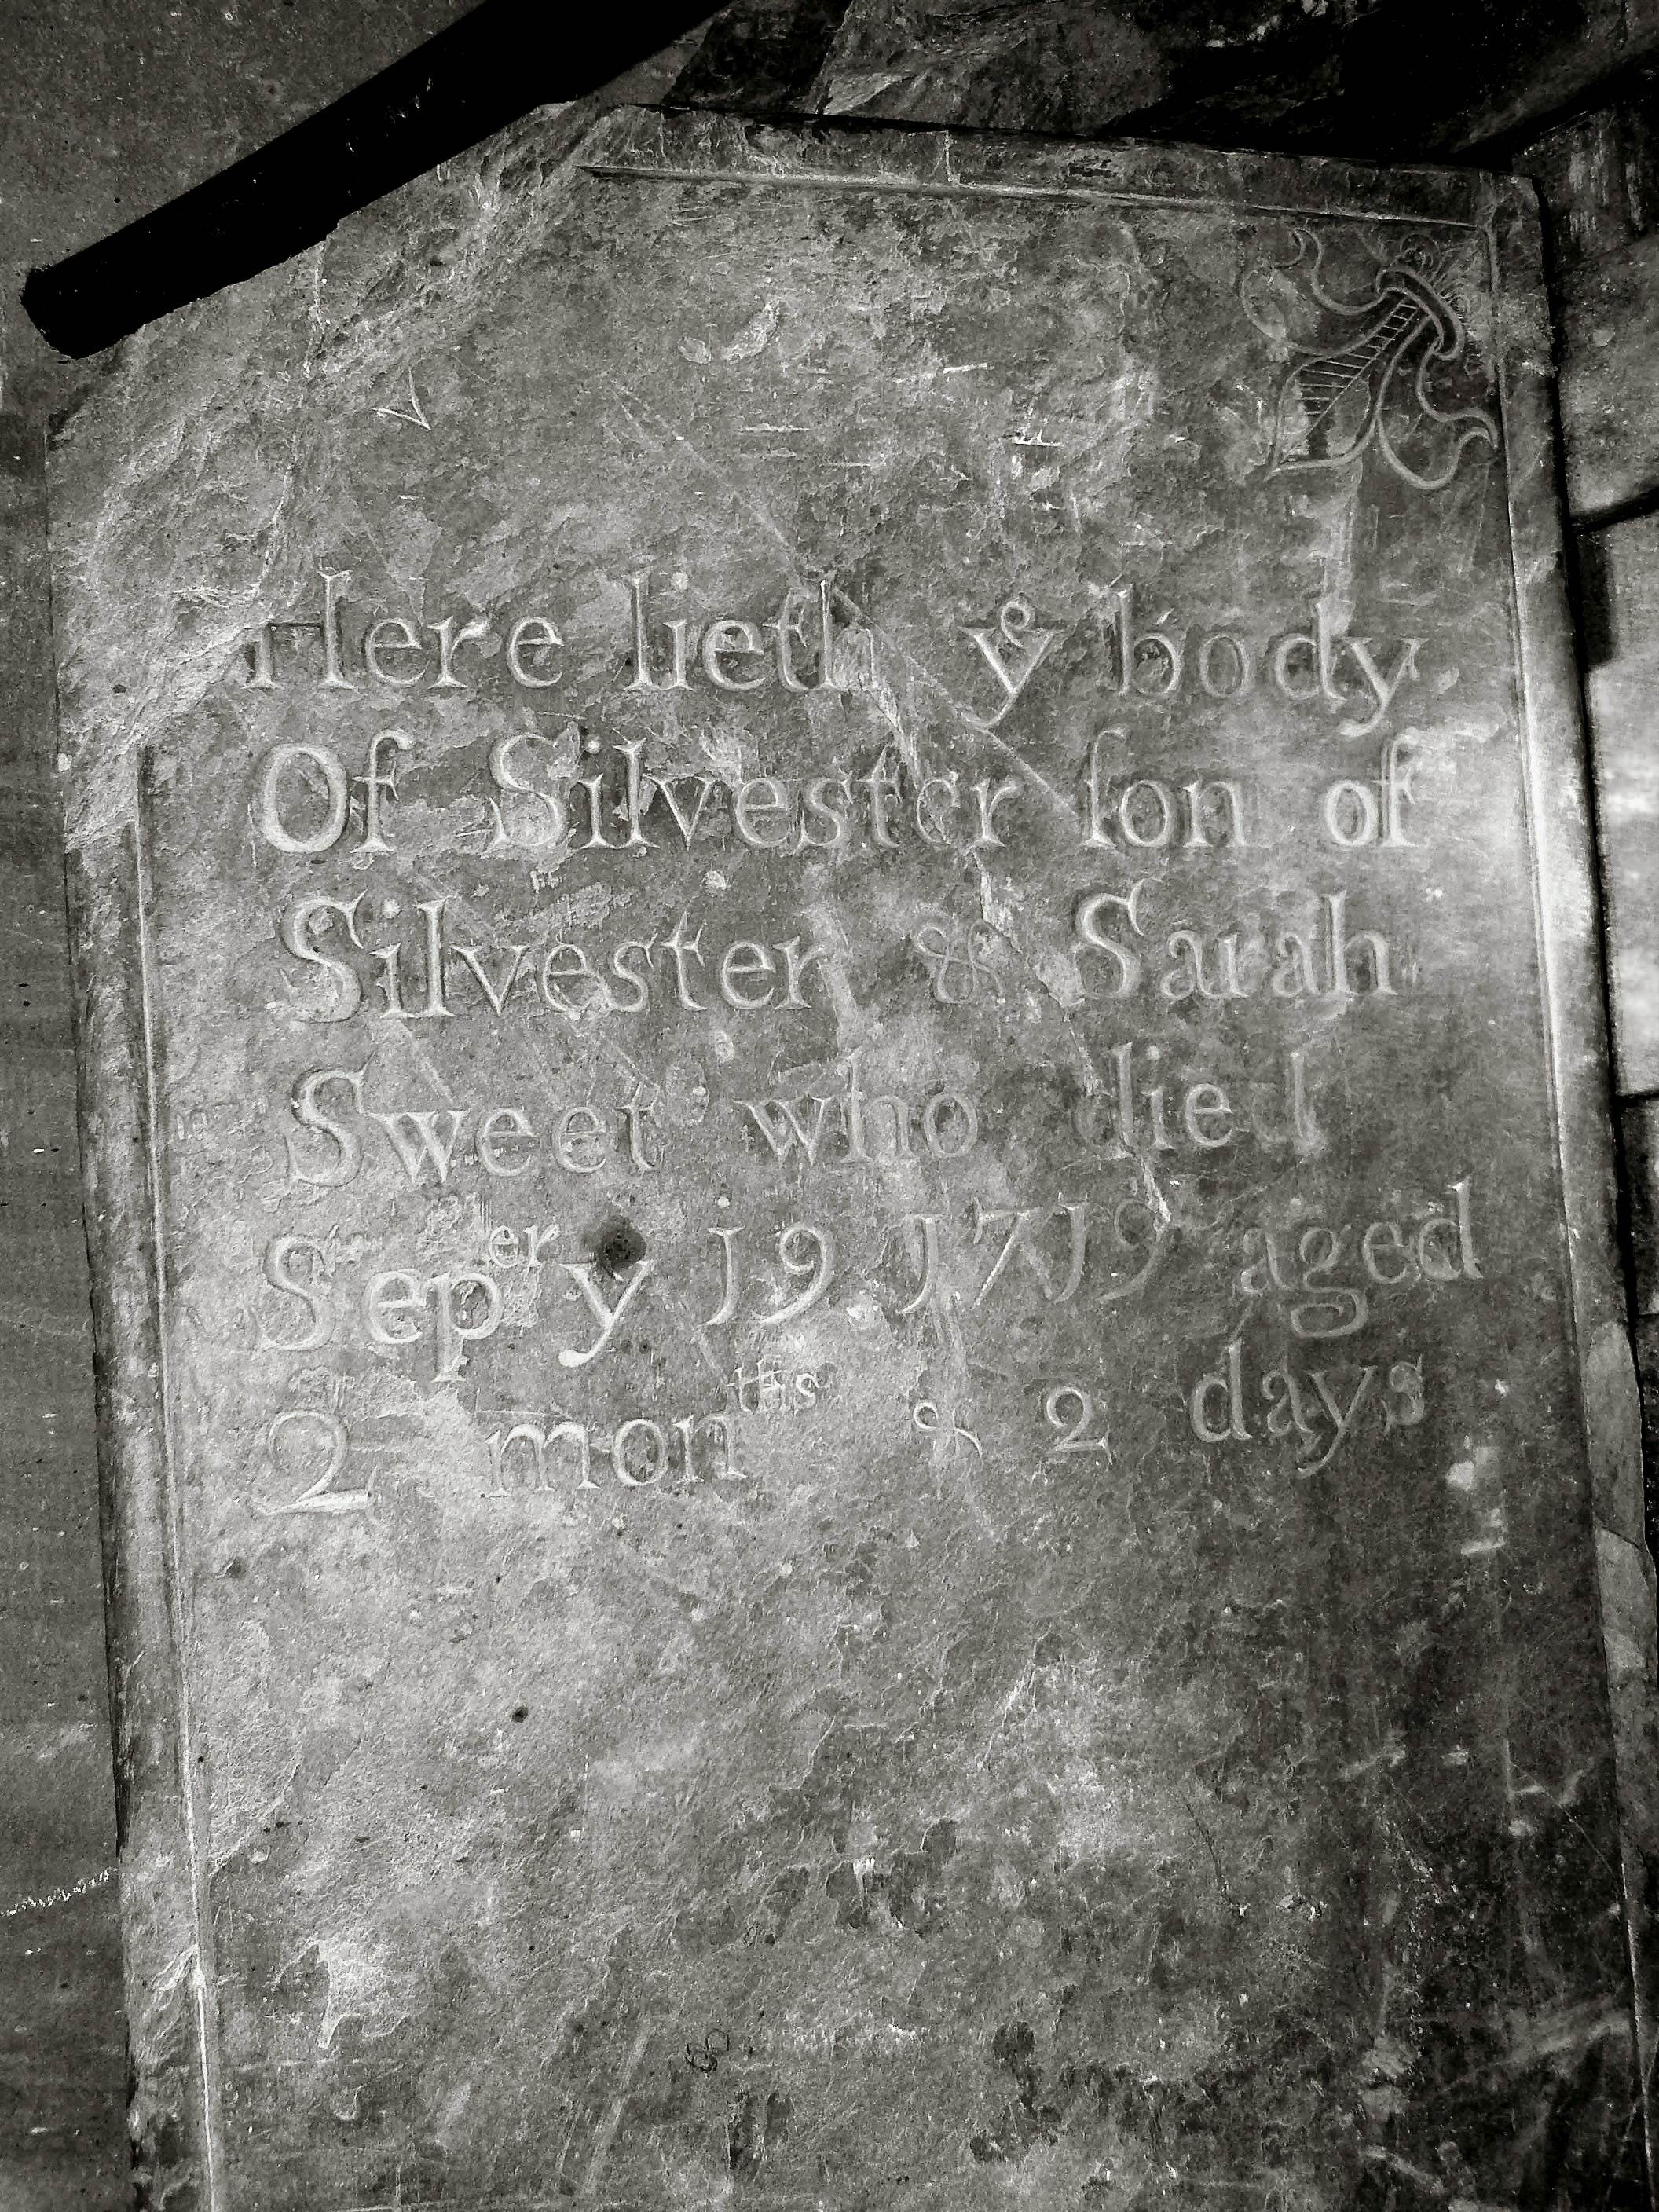 Here lieth yͤ body
Of Silvester ſon of
Silvester & Sarah
Sweet who died
Sepᵉʳ y 19 1719 aged
2 monᵗʰˢ & 2 days